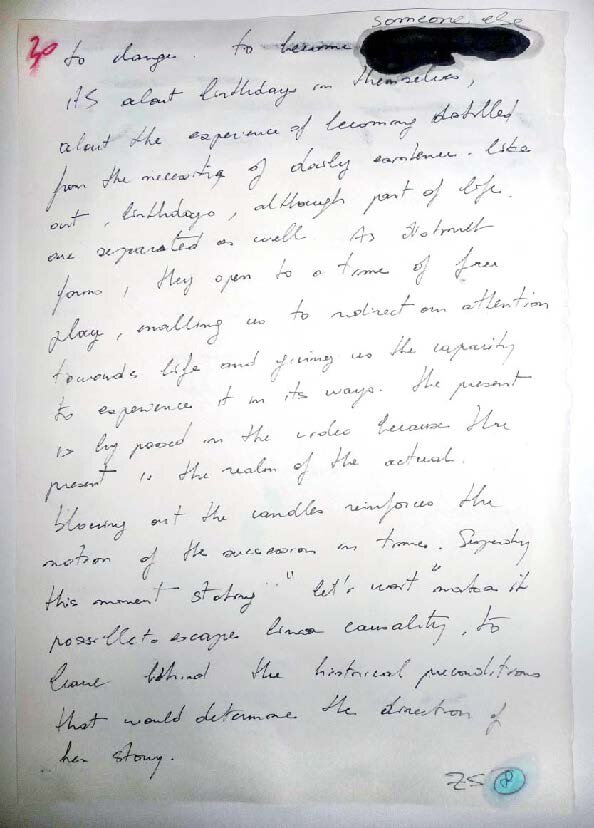 someone else
30
to change. to become
its about birthdays in themselves,
about the experience of becoming distilled
from the necessity of daily existence. like
art, birthdays, although part of life.
are separated as well. As abstract
forms, they open to a time of free
play, enabling us to redirect our attention
towards life and giving us the capacity
to experience it in its ways. the present
is by passed in the video because the
present is the realm of the actual.
blowing out the candles reinforces the
notion of the succession in time.
this moment stating "let's wait" makes it
possible to escape linear causality, to
leave behind the historical preconditions
that would determine the direction of
her story.
ZS 8